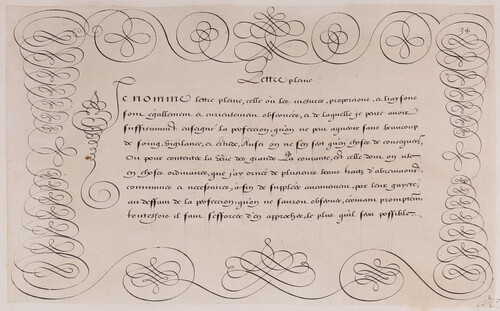 14
Lettre pleine
Je nomme lettre pleine, celle ou les mesures, proporcions, et liaysons
sont egallement et curieusement observees, et de laquelle je peux avoir
suffisamment enseigné la perfection, qu'on ne peu aquerir sans beaucoup
de soing, vigilance, et estude. Aussi on ne s'en sert qu'en choses de consequence
Ou pour contenter la veue des grands. La courante, est celle dont on use
en choses ordinaires, que j'ay ornée de plusieurs beaux traits d'abreviations
communes et necessaires, afin de supplеer aucunement, par leur gayeté,
au deffaut de la perfection qu'on ne sauroit observer, escrivant promptement
toutesfois il faut s'efforcer d'en approcher le plus qu'il sera possible.